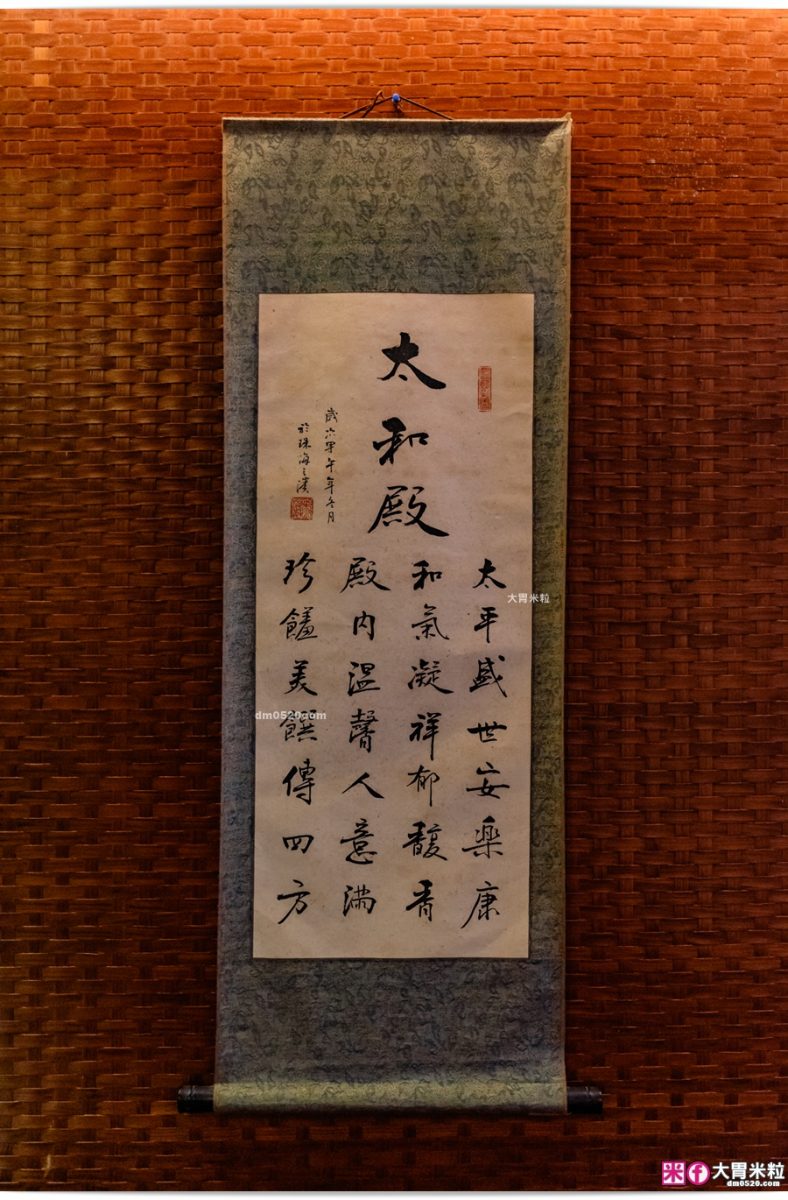 太和殿
太平盛世安樂康
和氣凝祥郁馥香
殿內温馨人意滿
珍饈美饌傳四方
歲六甲午年冬月
於珠海之濱
大胃米粒
dm0520.com
大胃米粒
dm0520.com